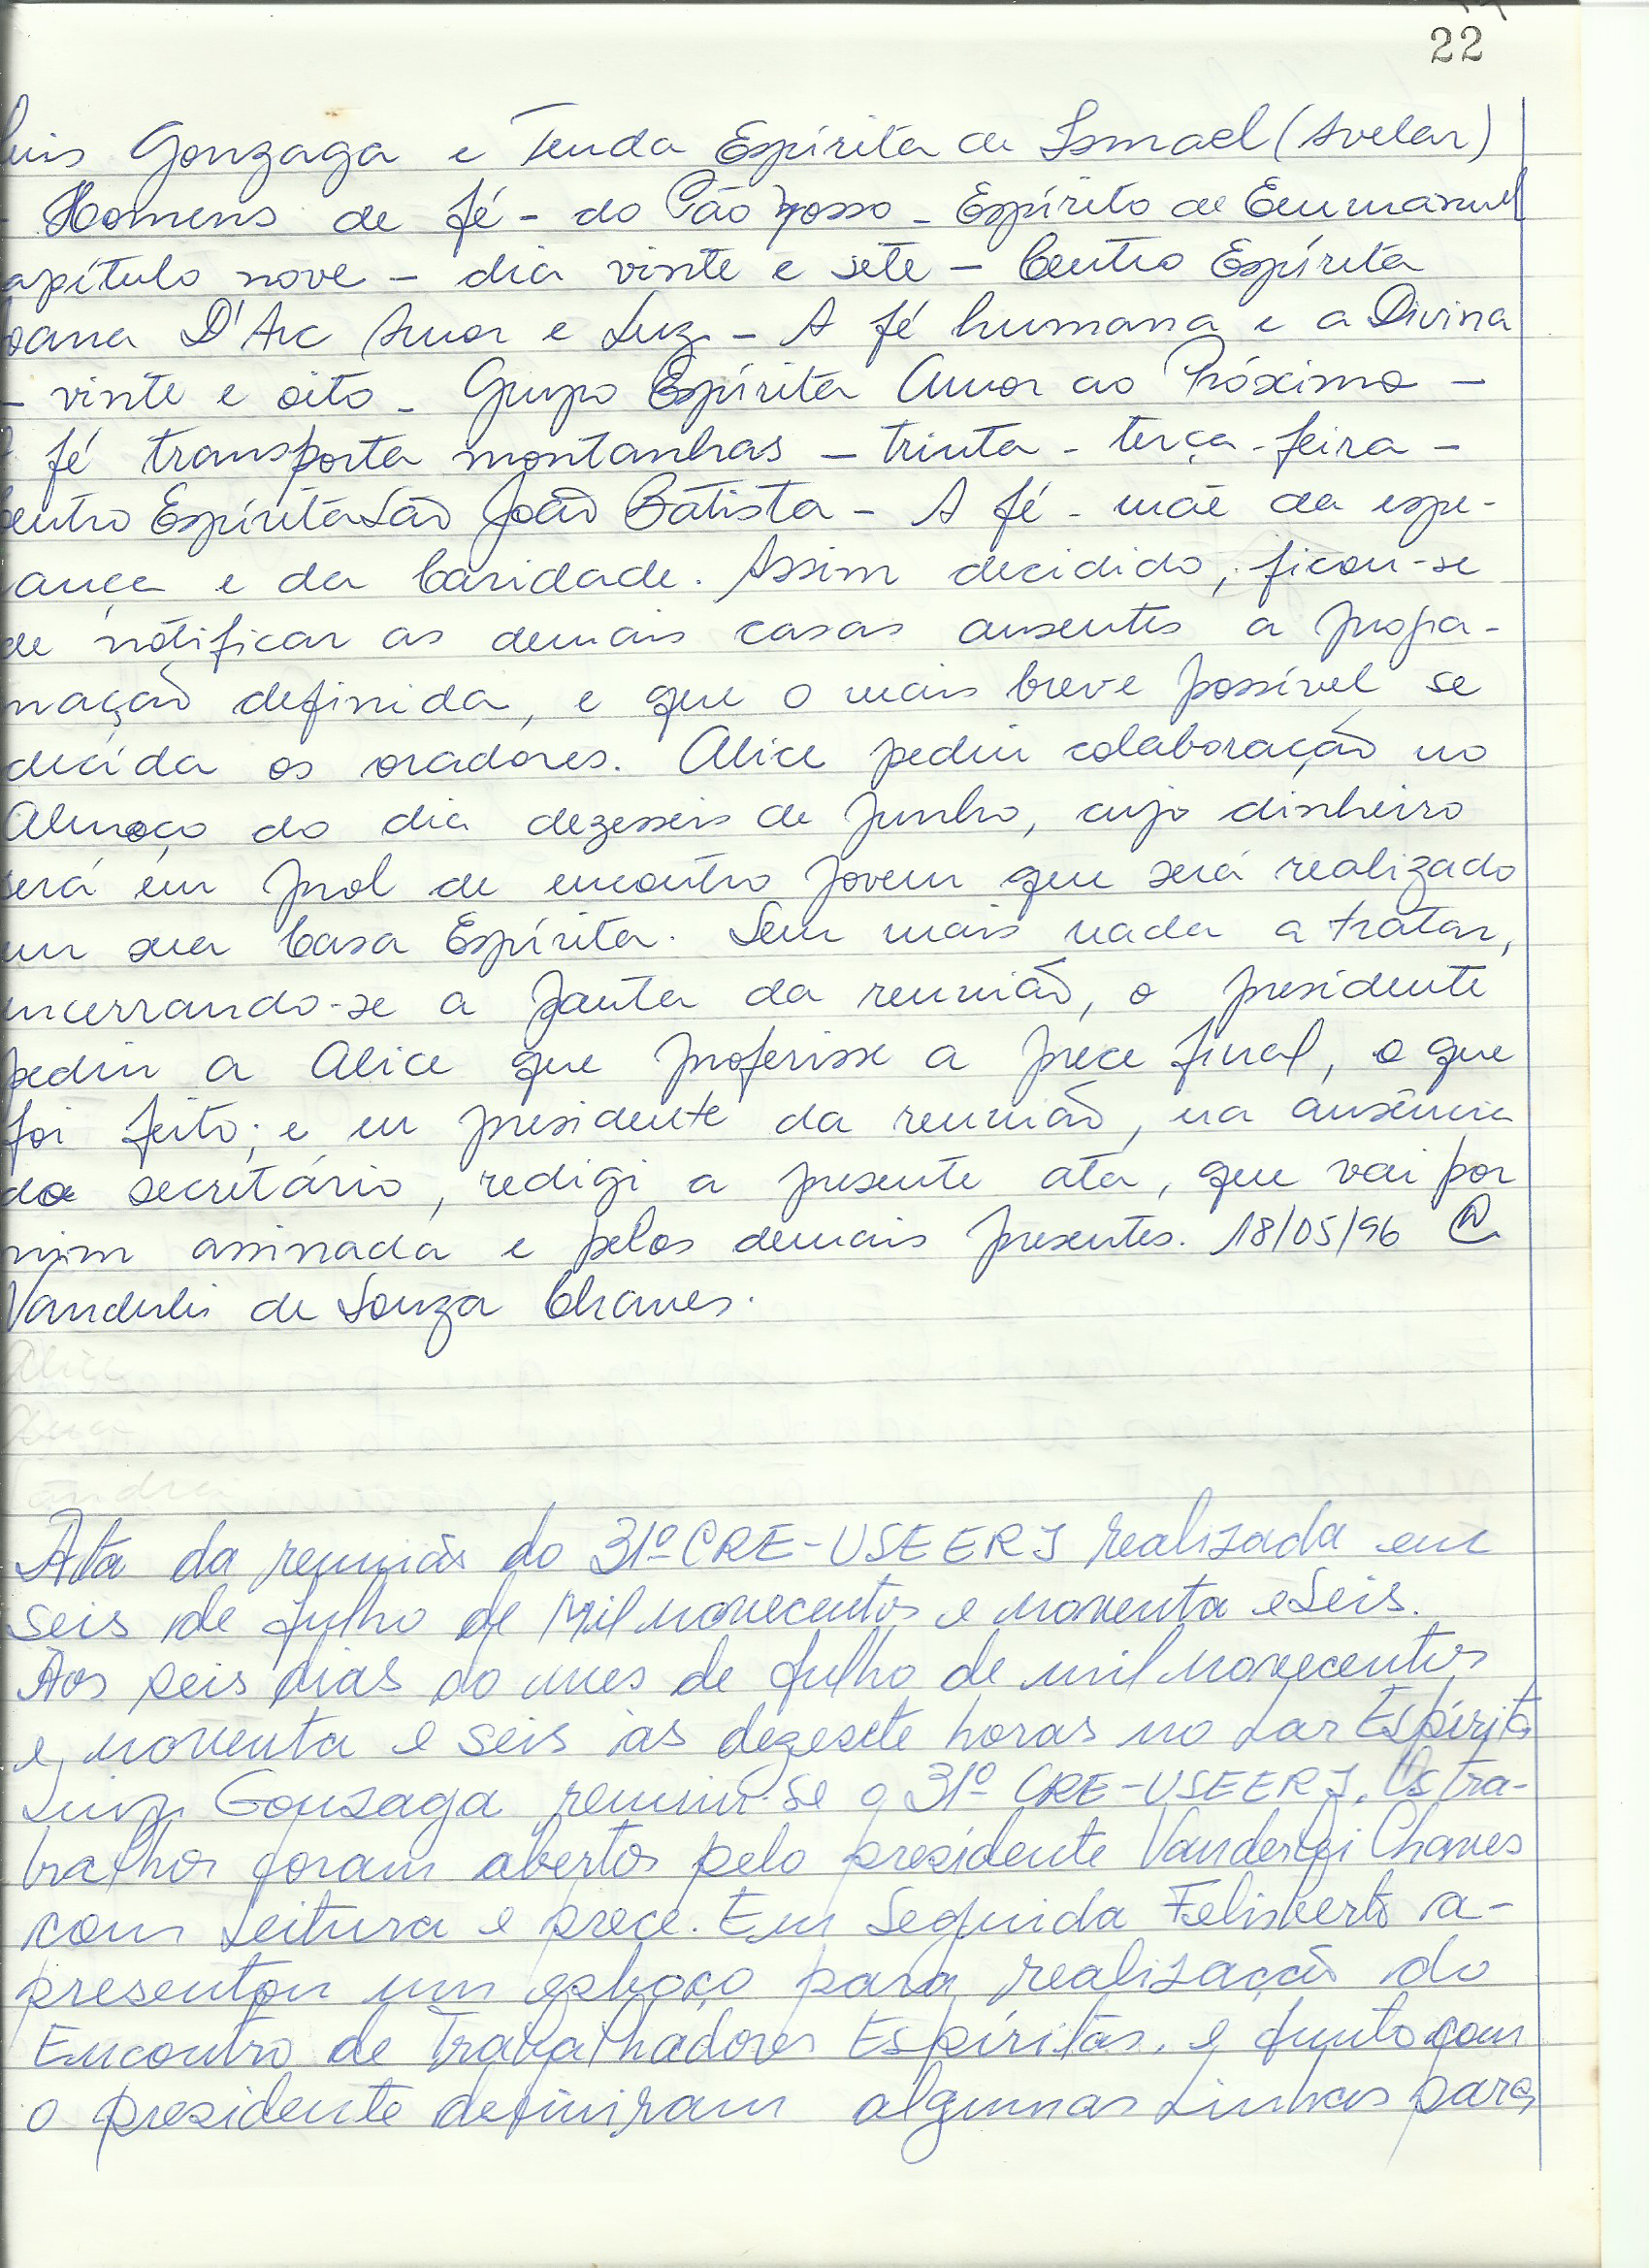 22
Luis Gonzaga e Tenda Espírita de Ismael (Avelar)
- Homens de fé - do Pão Nosso - Espírito de Emmanuel
apítulo nove - dia vinte e sete - Centro Espírita
Joana D'Arc Amor e Luz - A fé humana e a Divina
- vinte e oito - Grupo Espírita Amor ao Próximo -
A fé transporta montanhas - trinta - terça-feira -
Centro Espírita São João Batista - A fé - mãe da espe-
rança e da Caridade. Assim decidido, ficou-se
de notificar as demais casas ausentes a progra-
mação definida, e que o mais breve possível se
decida os oradores. Alice pediu colaboração no
Almoço do dia dezesseis de Junho, cujo dinheiro
será em prol de encontro jovem que será realizado
em sua Casa Espírita. Sem mais nada a tratar,
encerrando-se a pauta da reunião, o presidente
pediu a Alice que proferisse a prece final, o que
foi feito; e eu presidente da reunião, na ausência
do secretário, redigi a presente ata, que vai por
mim assinada e pelos demais presentes. 18/05/96
Vanderlei de Souza Chaves.
Alice
Ata da reunião do 31º CRE-USEERJ realizada em
seis de julho de Mil novecentos e noventa e seis.
Aos seis dias do mes de julho de mil novecentos
e noventa e seis às dezesete horas no Lar Espírita
Luiz Gonzaga reuniu-se o 31º CRE-USEERJ. Os tra-
balhos foram abertos pelo presidente Vanderlei Chaves
com Leitura e prece. Em Seguida Felisberto a-
presentou um esboço para realização do
Encontro de Trabalhadores Espíritas. e junto com
o presidente definiram algumas Linhas para